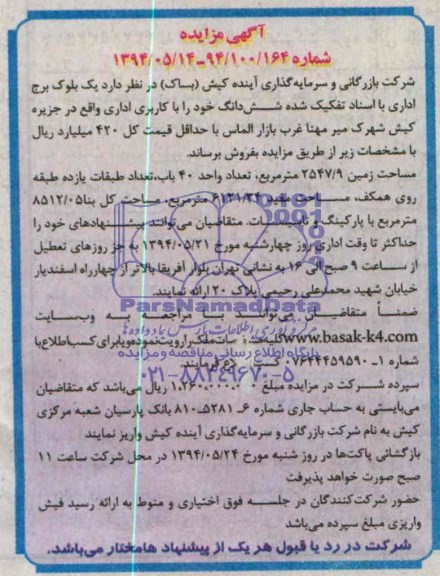 آگهی مزایده
شماره ۹۴/۱۰۰/۱۶۴-۱۳۹۴/۰۵/۱۴
شرکت بازرگانی و سرمایه‌گذاری آینده کیش (بساک) در نظر دارد یک بلوک برج
اداری با اسناد تفکیک شده شش‌دانگ خود را با کاربری اداری واقع در جزیره
کیش شهرک میر مهنا غرب بازار الماس با حداقل قیمت کل ۴۲۰ میلیارد ریال
با مشخصات زیر از طریق مزایده بفروش برساند.
مساحت زمین ۲۵۴۷/۹ مترمربع، تعداد واحد ۴۰ باب، تعداد طبقات یازده طبقه
روی همکف، مساحت مفید ۶۱۳۱/۲۴ مترمربع، مساحت کل بنا ۸۵۱۲/۰۵
مترمربع با پارکینگ و تاسیسات. متقاضیان می‌توانند پیشنهادهای خود را
حداکثر تا وقت اداری روز چهارشنبه مورخ ۱۳۹۴/۰۵/۲۱ به جز روزهای تعطیل
از ساعت ۹ صبح الی ۱۶ به نشانی تهران بلوار آفریقا بالاتر از چهارراه اسفندیار
خیابان شهید محمدعلی رحیمی پلاک ۲۰ ارائه نمایند.
ParsNamadData
ضمناً متقاضیان می‌توانند با مراجعه به وب‌سایت
www.basak-k4.com کلیه مشخصات ملک را رویت نموده و یا برای کسب اطلاع با
پایگاه اطلاع رسانی مناقصه و مزایده
شماره ۱-۰۷۶۴۴۴۵۹۵۹۰ کسب اطلاع فرمایند.
۰۲۱-۸۸۳۴۹۶۷۰-۵
سپرده شرکت در مزایده مبلغ ریال می‌باشد که متقاضیان
می‌بایستی به حساب جاری شماره ۶-۵۲۸۱-۸۱۰ بانک پارسیان شعبه مرکزی
کیش به نام شرکت بازرگانی و سرمایه‌گذاری آینده کیش واریز نمایند
بازگشائی پاکت‌ها در روز شنبه مورخ ۱۳۹۴/۰۵/۲۴ در محل شرکت ساعت ۱۱
صبح صورت خواهد پذیرفت
حضور شرکت‌کنندگان در جلسه فوق اختیاری و منوط به ارائه رسید فیش
واریزی مبلغ سپرده می‌باشد
شرکت در رد یا قبول هر یک از پیشنهاد ها مختار می‌باشد.